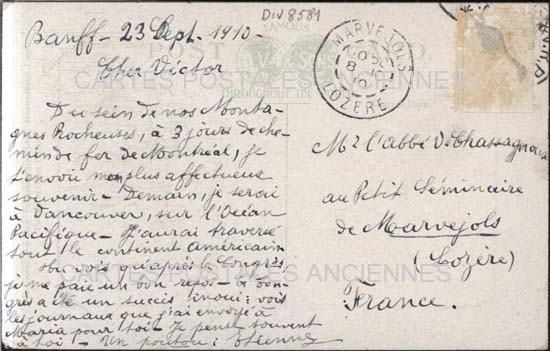 Div 8581
Banff - 23 Sept. 1910 -
Cher Victor
Du sein de nos Monta-
gnes Rocheuses, à 3 jours de che-
min de fer de Montréal, je
t'envoie mon plus affectueux
souvenir - Demain, je serai
à Vancouver, sur l'Océan
Pacifique - J'aurai traversé
tout le continent américain
Tu vois qu'après le Congrès
je me paie un bon repos - Le Con-
grès a été un succès inouï : vois
les journaux que j'ai envoyé à
Maria pour toi. Je pense souvent
à toi - Un poutou : Etienne
MARVEJOLS
LOZERE
Mr l'abbé V. Chassagnac
au Petit Séminaire
de Marvejols
(Lozère)
France.
POST CARD
FAMOUS
THROUGHOUT THE
CARTES POSTALES ANCIENNES
CARTES POSTALES ANCIENNES